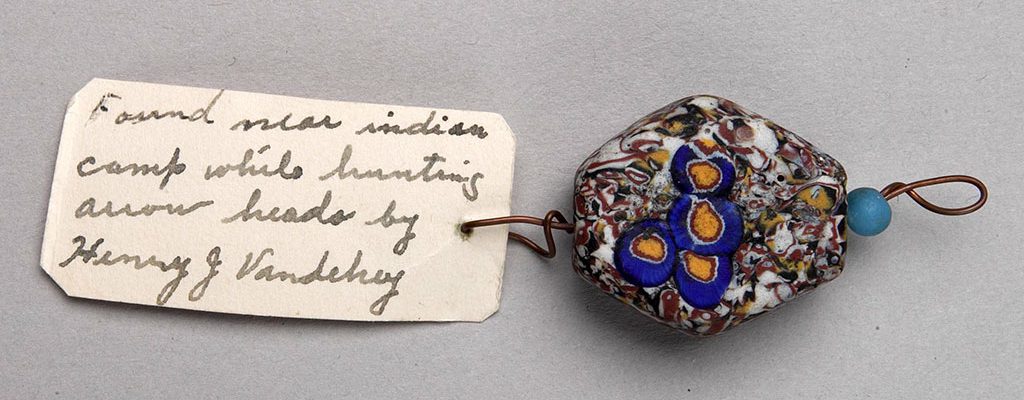 Found near indian
camp while hunting
arrow heads by
Henry J Vandehey